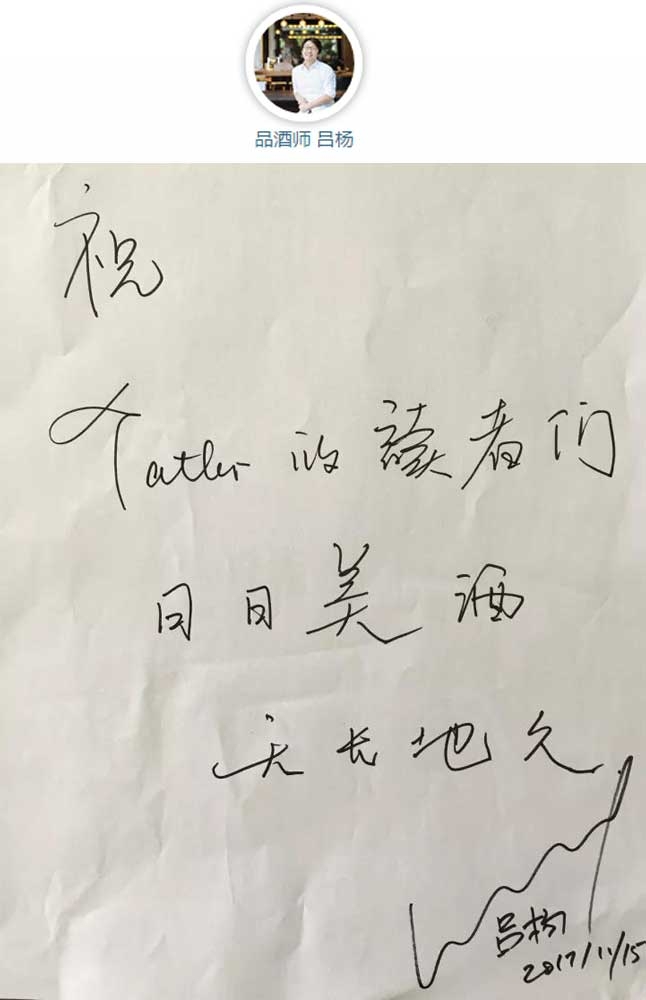 品酒师 吕杨
祝
Tatler 的讀者们
日日美酒
天长地久
吕杨
2017/11/15